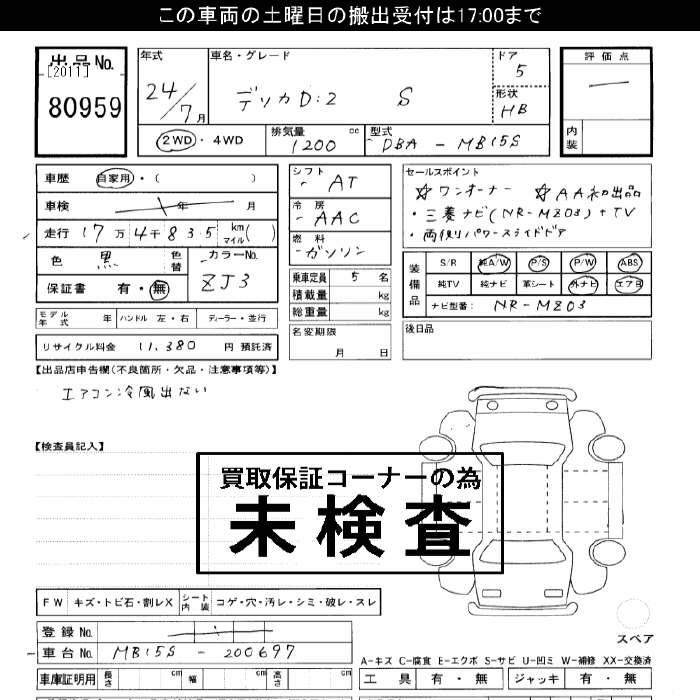 この車両の土曜日の搬出受付は17:00まで
出品No. [2011] 80959
年式 24/7月
車名・グレード デリカD:2 S
ドア 5
形状 HB
評価点 一
内装
2WD・4WD
排気量 1200 cc
型式 DBA-MB15S
車歴 自家用・( )
車検 年 月
走行 17万4千835 km マイル( )
色 黒 色替
カラーNo. ZJ3
保証書 有・無
シフト AT
冷房 AAC
燃料 ガソリン
乗車定員 5名
積載量 kg
総重量 kg
名変期限 月 日
セールスポイント
☆ワンオーナー ☆AA初出品
・三菱ナビ(NR-MZ03)+TV
・両側パワースライドドア
装備品
S/R 純A/W P/S P/W ABS
純TV 純ナビ 革シート 外ナビ エアB
ナビ型番: NR-MZ03
後日品
モデル年式 年 ハンドル 左・右 ディーラー・並行
リサイクル料金 11,380 円 預託済
【出品店申告欄(不良箇所・欠品・注意事項等)】
エアコン冷風出ない
【検査員記入】
買取保証コーナーの為
未検査
FW キズ・トビ石・割レX シート内装 コゲ・穴・汚レ・シミ・破レ・スレ
登録No.
車台No. MB15S-200697
スペア
A-キズ C-腐食 E-エクボ S-サビ U-凹ミ W-補修 XX-交換済
車庫証明用 長さ cm 幅 cm 高さ cm
工具 有・無 ジャッキ 有・無